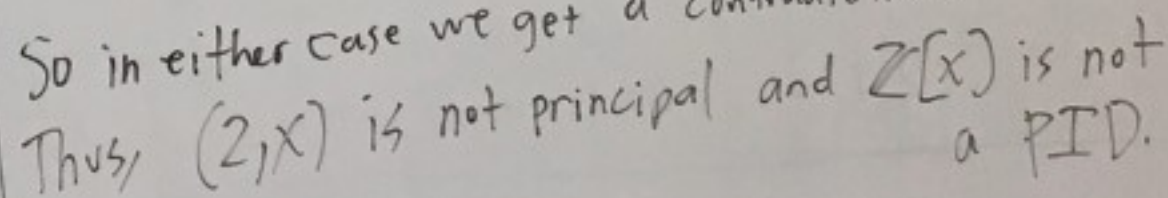 So in either case we get a
Thus, (2,x) is not principal and Z[x] is not
a PID.